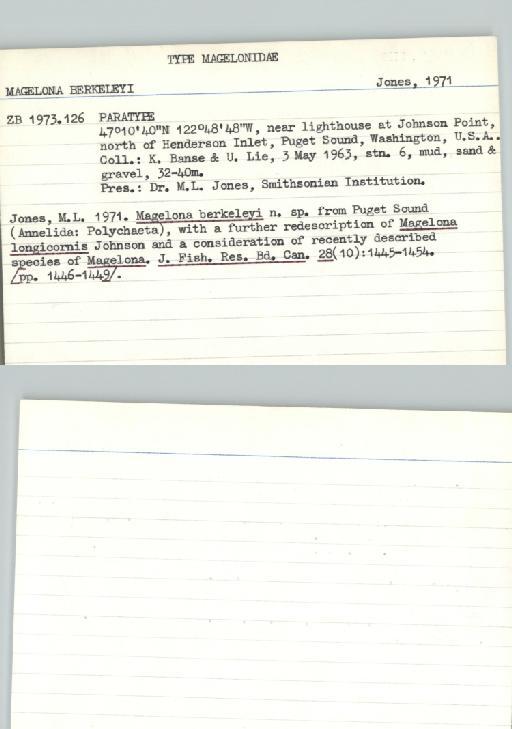 TYPE MAGELONIDAE
MAGELONA BERKELEYI Jones, 1971
ZB 1973.126 PARATYPE
47º10'40"N 122º48'48"W, near lighthouse at Johnson Point,
north of Henderson Inlet, Puget Sound, Washington, U.S.A..
Coll.: K. Banse & U. Lie, 3 May 1963, stn. 6, mud, sand &
gravel, 32-40m.
Pres.: Dr. M.L. Jones, Smithsonian Institution.
Jones, M.L. 1971. Magelona berkeleyi n. sp. from Puget Sound
(Annelida: Polychaeta), with a further redescription of Magelona
longicornis Johnson and a consideration of recently described
species of Magelona. J. Fish. Res. Bd. Can. 28(10):1445-1454.
/pp. 1446-1449/.